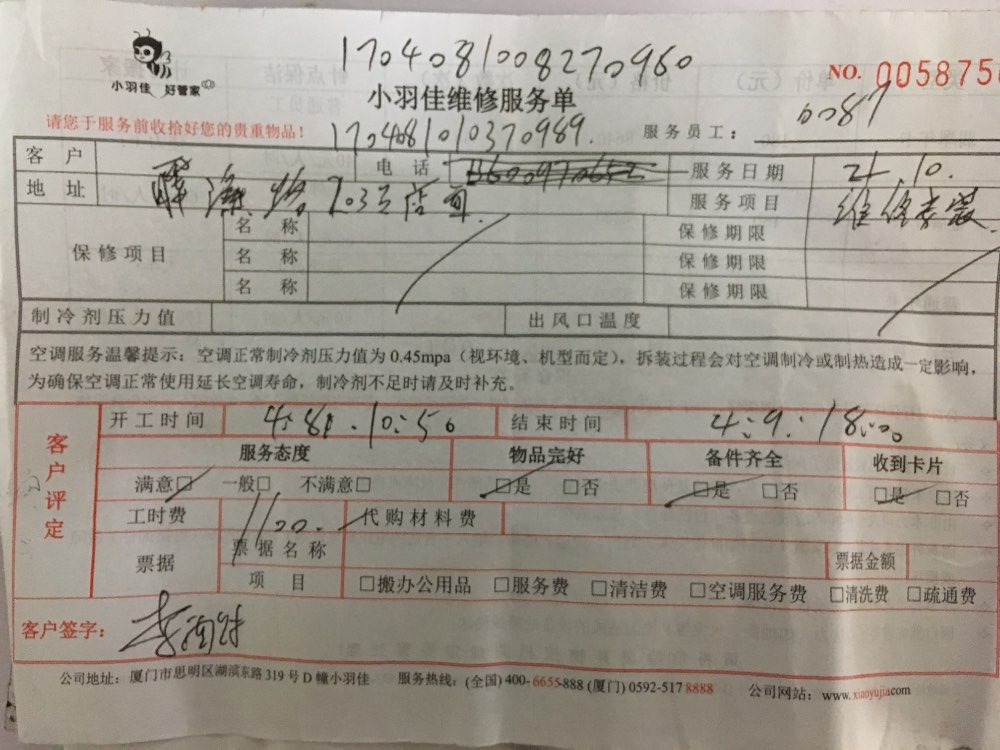 1704081008270960
小羽佳 好管家
NO. 005875
小羽佳维修服务单
请您于服务前收拾好您的贵重物品！
1704081010370989
服务员工： 0087
客 户
电 话
服务日期 10.
地 址 203 店面
服务项目 维修安装
保修项目
名 称 保修期限
名 称 保修期限
名 称 保修期限
制冷剂压力值 出风口温度
空调服务温馨提示：空调正常制冷剂压力值为 0.45mpa（视环境、机型而定），拆装过程会对空调制冷或制热造成一定影响，
为确保空调正常使用延长空调寿命，制冷剂不足时请及时补充。
客户评定
开工时间 10:50 结束时间 4.9. 18:00
服务态度 物品完好 备件齐全 收到卡片
满意□ 一般□ 不满意□ □是 □否 □是 □否 □是 □否
工时费 1100. 代购材料费
票据
票据名称 票据金额
项 目 □搬办公用品 □服务费 □清洁费 □空调服务费 □清洗费 □疏通费
客户签字：
公司地址：厦门市思明区湖滨东路 319 号 D 幢小羽佳 服务热线：(全国) 400-6655-888 (厦门) 0592-517 8888 公司网站：www.xiaoyujia.com